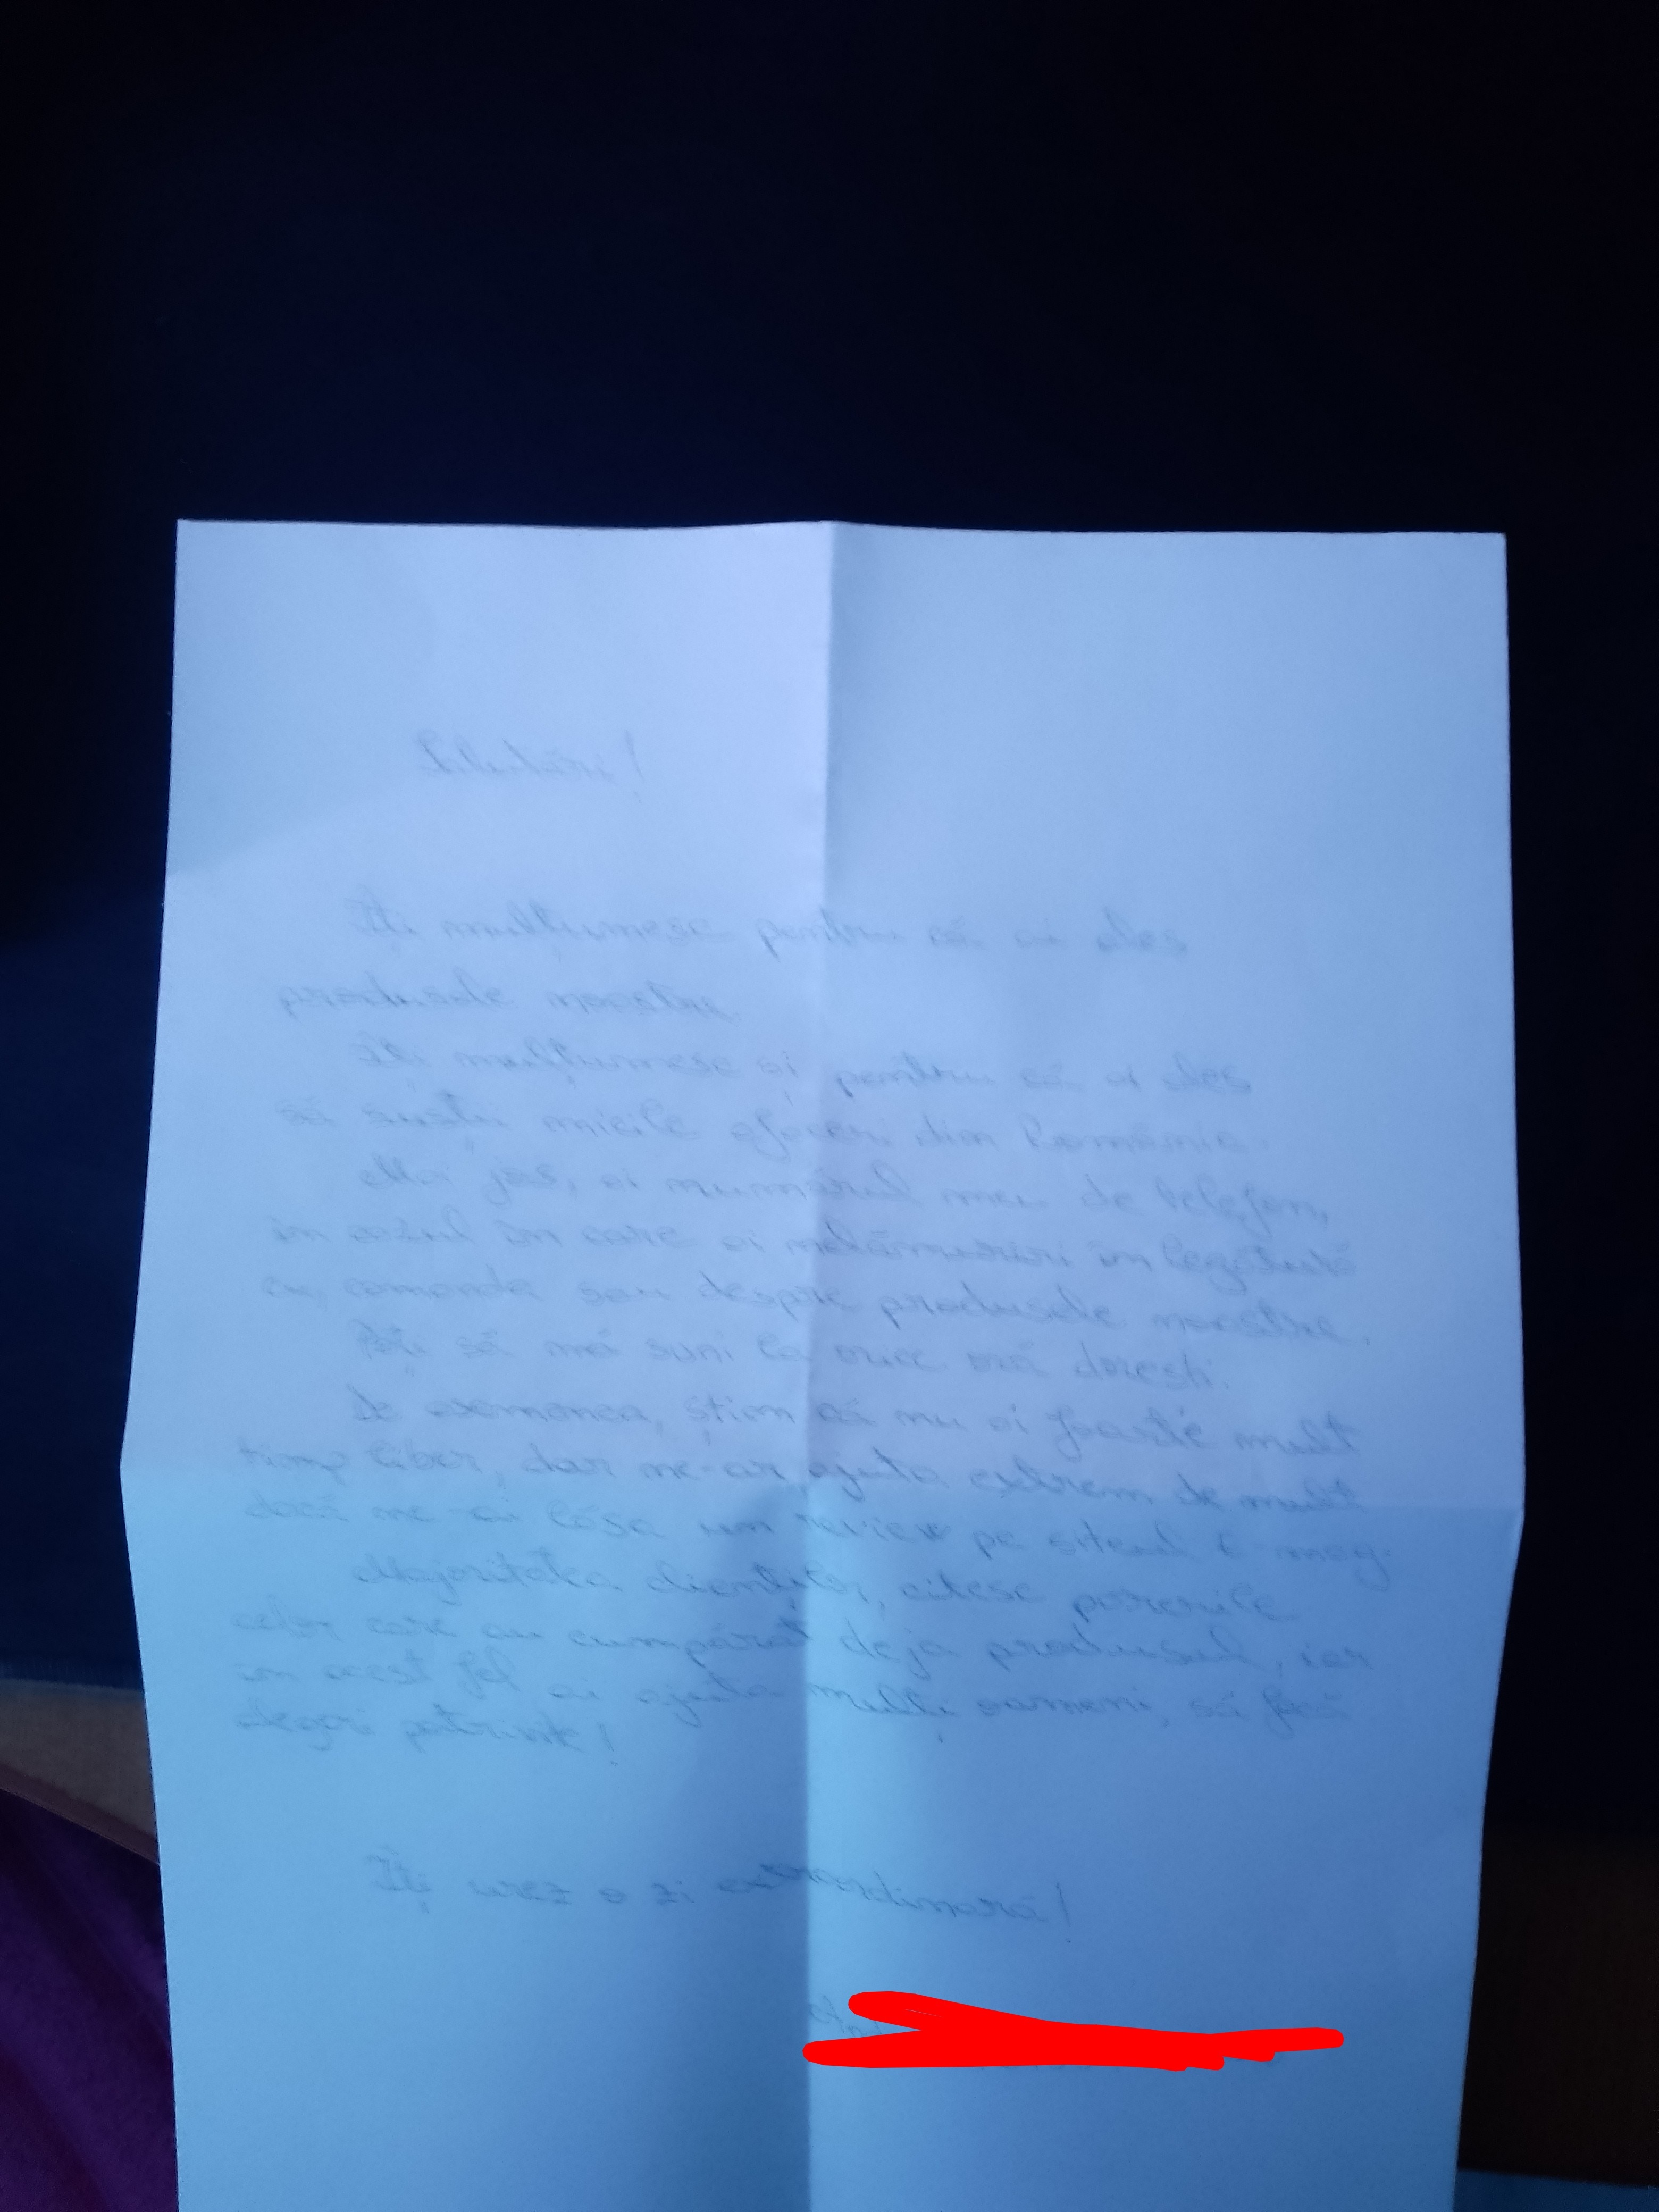 Salutări!
Îți mulțumesc pentru că ai ales
produsele noastre.
Îți mulțumesc și pentru că ai ales
să susții micile afaceri din România.
Mai jos, ai numărul meu de telefon,
în cazul în care ai nelămuriri în legătură
cu comanda sau despre produsele noastre.
Poți să mă suni la orice oră dorești.
De asemenea, știm că nu ai foarte mult
timp liber, dar ne-ar ajuta extrem de mult
dacă ne-ai lăsa un review pe siteul E-mag.
Majoritatea clienților, citesc părerile
celor care au cumpărat deja produsul, iar
în acest fel ai ajuta mulți oameni, să facă
alegeri potrivite!
Îți urez o zi extraordinară!